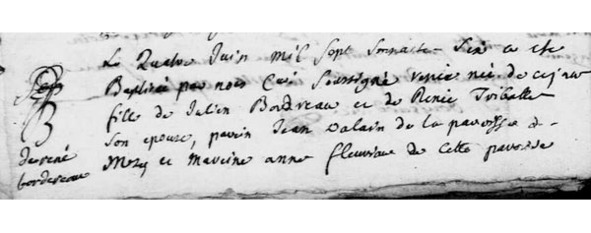 Le Quatre Juin mil Sept Soixante Six a ete
Baptisée par nous Curé Soussigné renée née de ce jour
fille de Julien Bordereau et de Renée Triballe
Son epouse, parein Jean valain de la paroisse de
et mareine anne fleuriau de Cette paroisse
B
de rené
bordereau